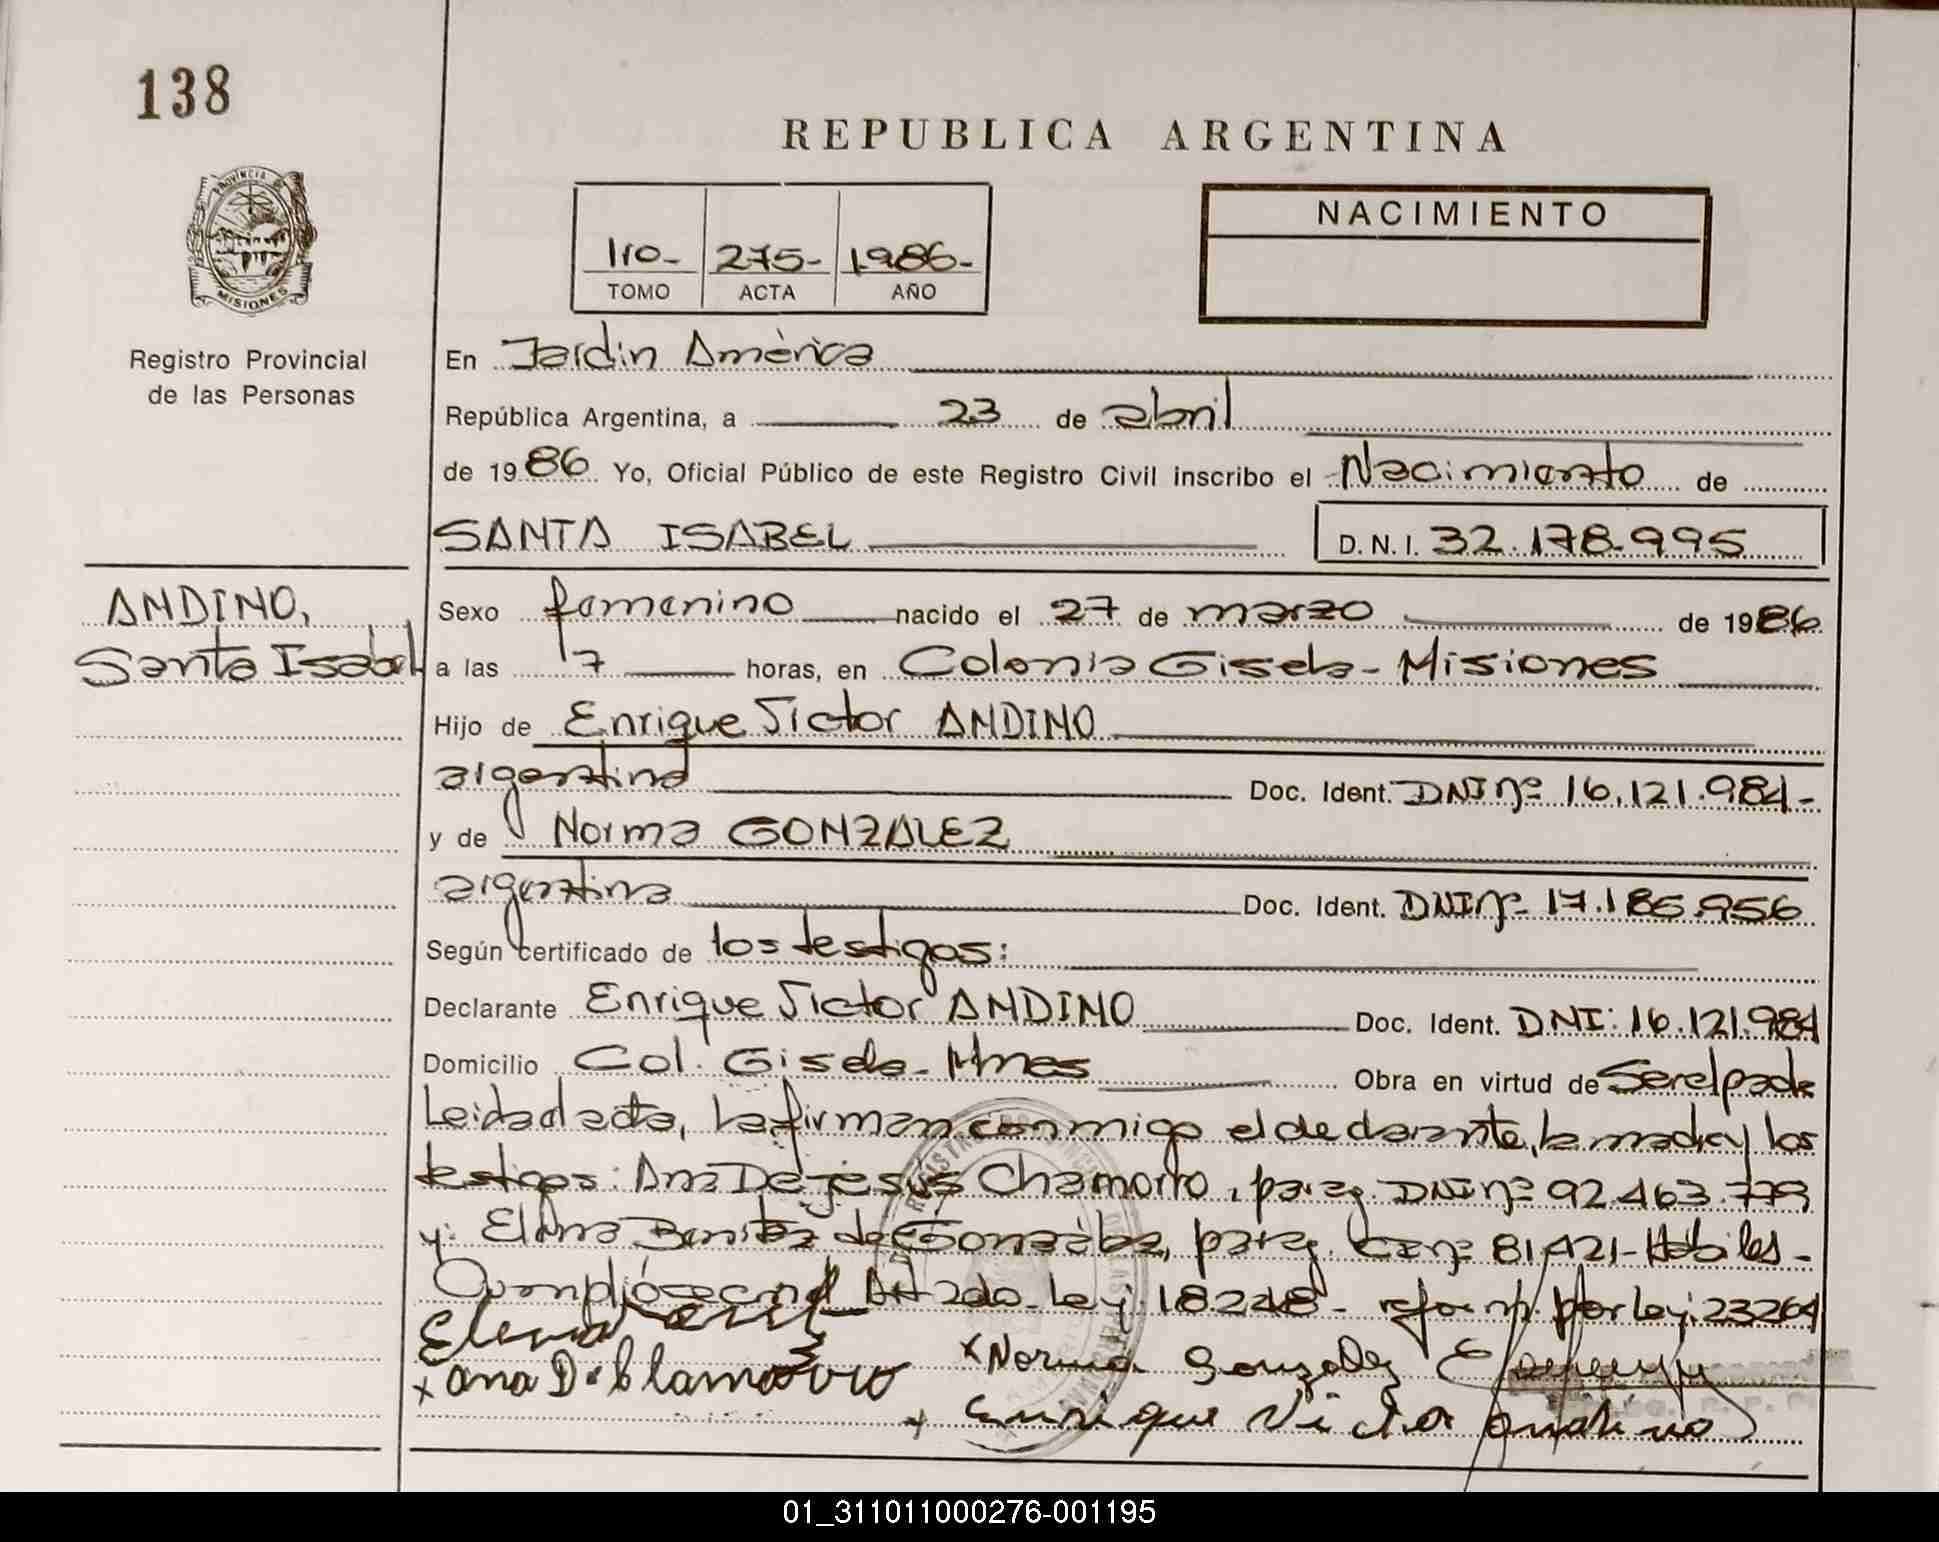 138
PROVINCIA DE
MISIONES
Registro Provincial
de las Personas
REPUBLICA ARGENTINA
1ro- 275- 1986-
TOMO ACTA AÑO
NACIMIENTO
En Jardin América
República Argentina, a 23 de abril
de 1986 Yo, Oficial Público de este Registro Civil inscribo el Nacimiento de
SANTA ISABEL D.N.I. 32.178.995
ANDINO,
Santa Isabel
Sexo femenino nacido el 27 de marzo de 1986
a las 7 horas, en Colonia Gisela - Misiones
Hijo de Enrique Victor ANDINO
argentino Doc. Ident. DNI nº 16.121.984-
y de Norma GONZALEZ
argentina Doc. Ident. DNI nº 17.186.956
Según certificado de los testigos:
Declarante Enrique Victor ANDINO Doc. Ident. DNI: 16.121.984
Domicilio Col. Gisela - Mnes Obra en virtud de Ser el padre
Leida el acta, la firman conmigo el declarante, la madre y los
testigos: Ana De jesús Chamorro, parag. DNI nº 92.463.779
y: Elena Benitez de González, parag. CI nº 81.421 - Hábiles -
Cumplióse con el Art 2do - Ley: 18248 - reform. por Ley: 23264
Elena
x ana D. x Norma Gonzalez
+ Enrique Victor andino
01_311011000276-001195